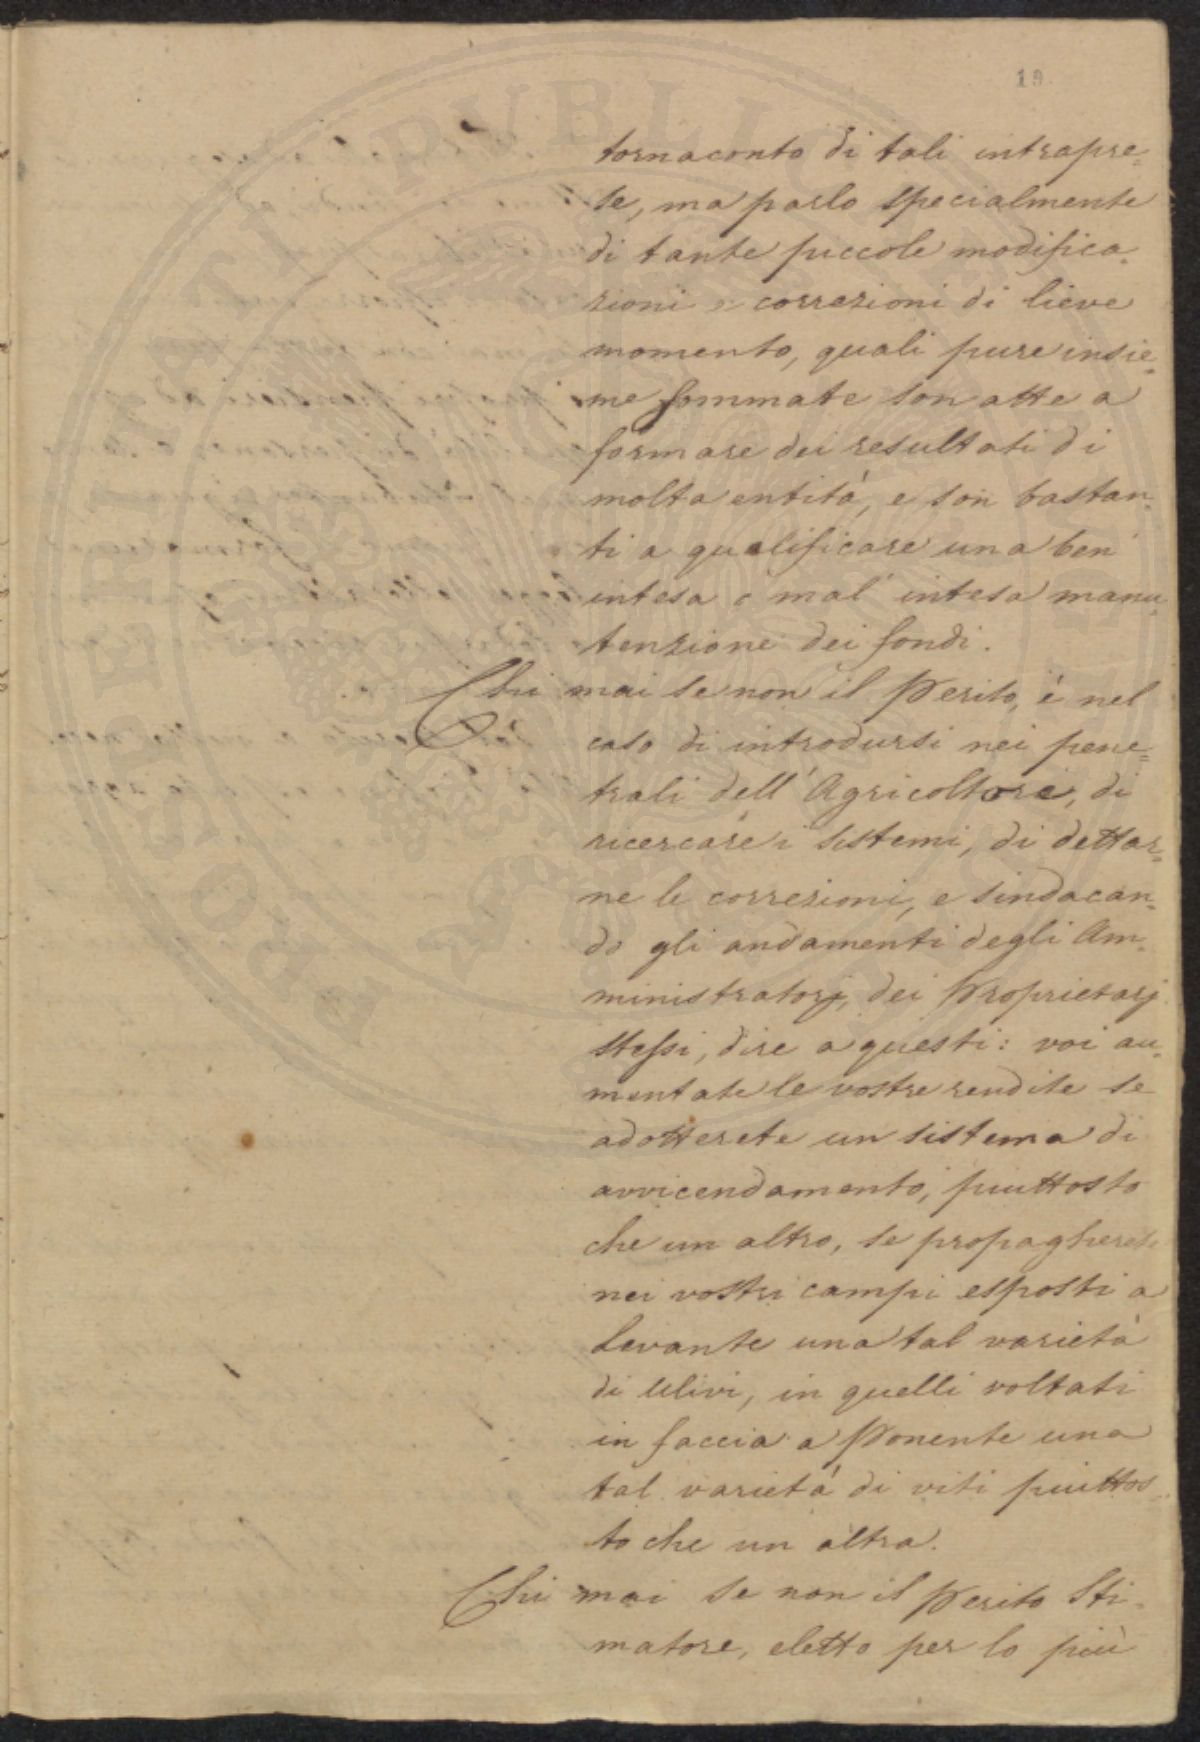 19.
tornaconto di tali intrapre=
se, ma parlo specialmente
di tante piccole modifica=
zioni e correzioni di lieve
momento, quali pure insie=
me sommate son atte a
formare dei resultati di
molta entità, e son bastan=
ti a qualificare una ben'
intesa o mal' intesa manu=
tenzione dei fondi.
Chi mai se non il Perito, è nel
caso di introdursi nei pene=
trali dell' Agricoltore, di
ricercare i sistemi, di dettar=
ne le correzioni, e sindacan=
do gli andamenti degli Am=
ministratorj, dei Proprietarj
stessi, dire a questi: voi au=
mentate le vostre rendite se
adotterete un sistema di
avvicendamento, piuttosto
che un altro, se propagherete
nei vostri campi esposti a
Levante una tal varietà
di Ulivi, in quelli voltati
in faccia a Ponente una
tal varietà di viti piuttos=
to che un altra.
Chi mai se non il Perito Sti=
matore, eletto per lo più
PERITI PUBLIC
PROSPERITATI